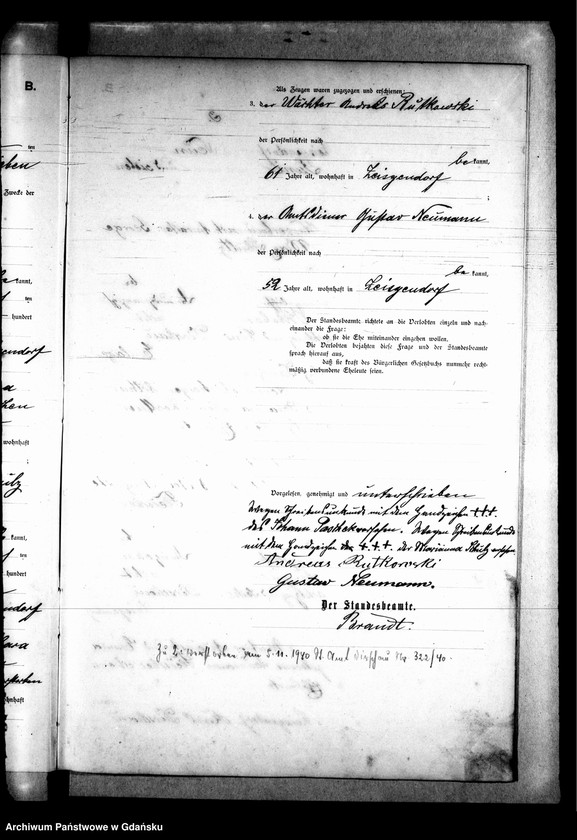 B.
ten
Zwecke der
kannt,
ten
hundert
wohnhaft
kannt,
hundert
wohnhaft
Als Zeugen waren zugezogen und erschienen:
3. der Wächter Andreas Rutkowski
der Persönlichkeit nach
be kannt,
61 Jahre alt, wohnhaft in Zeisgendorf
4. der Amtsdiener Gustav Neumann
der Persönlichkeit nach
be kannt,
52 Jahre alt, wohnhaft in Zeisgendorf
Der Standesbeamte richtete an die Verlobten einzeln und nach-
einander die Frage:
ob sie die Ehe miteinander eingehen wollen.
Die Verlobten bejahten diese Frage und der Standesbeamte
sprach hierauf aus,
daß sie kraft des Bürgerlichen Gesetzbuchs nunmehr recht-
mäßig verbundene Eheleute seien.
Vorgelesen, genehmigt und unterschrieben
Wegen Schreibensunkunde mit dem Handzeichen +++
des Johann versehen. Wegen Schreibensunkunde
mit dem Handzeichen +++ der Marianna versehen
Andreas Rutkowski
Gustav Neumann.
Der Standesbeamte.
Brandt.
Zu 2: verstorben am 5.11.1940 St. Amt Dirschau Nr 322/40.
Archiwum Państwowe w Gdańsku